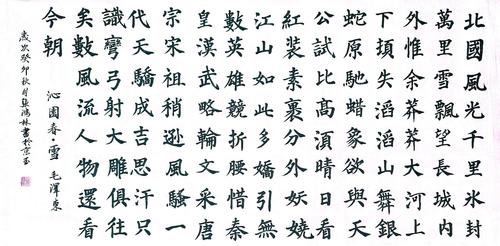 北國風光千里氷封
萬里雪飄望長城内
外惟余莽莽大河上
下頓失滔滔山舞銀
蛇原馳蜡象欲與天
公試比高須晴日看
紅裝素裹分外妖嬈
江山如此多嬌引無
數英雄競折腰惜秦
皇漢武略輪文采唐
宗宋祖稍遜風騷一
代天驕成吉思汗只
識彎弓射大雕俱往
矣數風流人物還看
今朝
沁園春·雪 毛澤東
歲次癸卯秋月鴻林書於京